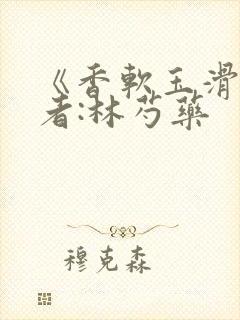 《香軟玉滑
者:林芍藥
穆克森